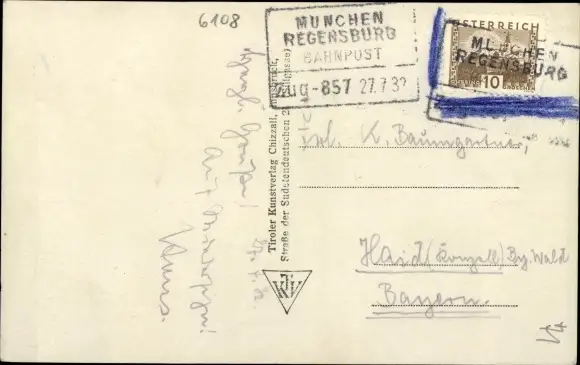 6108
MÜNCHEN
REGENSBURG
BAHNPOST
Zug-857 27.7.32
ÖSTERREICH
10
MÜNCHEN
REGENSBURG
Tiroler Kunstverlag Chizzali, Innsbruck,
Straße der Sudetendeutschen
Herzl. Grüße!
Auf Wiedersehn!
Hans.
Frl. K. Baumgartner,
Haid (Konzell) By. Wald
Bayern.